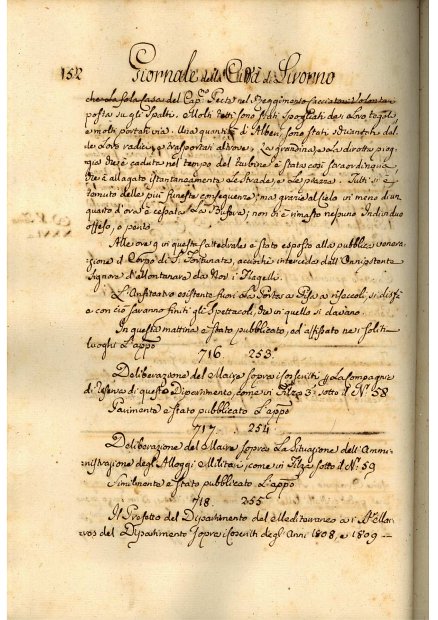 152 Giornale della Città di Livorno
che da sola Casa del Cap.º
posta su gli Spalti. Molti Tetti sono stati Spogliati de Loro tegoli
e molti portati via. Una quantità di Alberi, sono stati
Le Loro radici, e trasportati altrove. La grandine, e la dirotta piog-
gia che è caduta nel tempo del turbine è stata così straordinaria,
che è allagato istantaneamente Le Strade, e Le piazze. Tutti si è
temuto delle più funeste conseguenze; ma grazie al Cielo in meno di un
quarto d'ora è cessata La Bufera; non vi è rimasto nepure Individuo
offeso, o perito.
Alle ore 9 in questa Cattedrale è stato esposto alla pubblica venera-
zione il Corpo di S. Fortunato, acciò interceda dall'Onnipotente
Signore d'allontanare da Noi i Flagelli.
L'Anfiteatro esistente fuori la Porta a Pisa si disfà
e con ciò saranno finiti gli Spettacoli, che in quello si davano.
In questa mattina è stato pubblicato, ed affisso ne soliti
Luoghi L'appo
716 253.
Deliberazione del Maire sopra i Coscritti p La Compagnia
di Riserva di questo Dipartimento, come in Filza 3.ª sotto il N.º 58
Parimente è stato pubblicato L'appo
717 254
Deliberazione del Maire sopra La Situazione dell'Ammi-
nistrazione degli Alloggi Militari, come in Filza sotto il N.º 59
Similmente è stato pubblicato L'appo
718. 255
Il Prefetto del Dipartimento del Mediterraneo a i
del Dipartimento sopra i Coscritti degli Anni 1808, e 1809